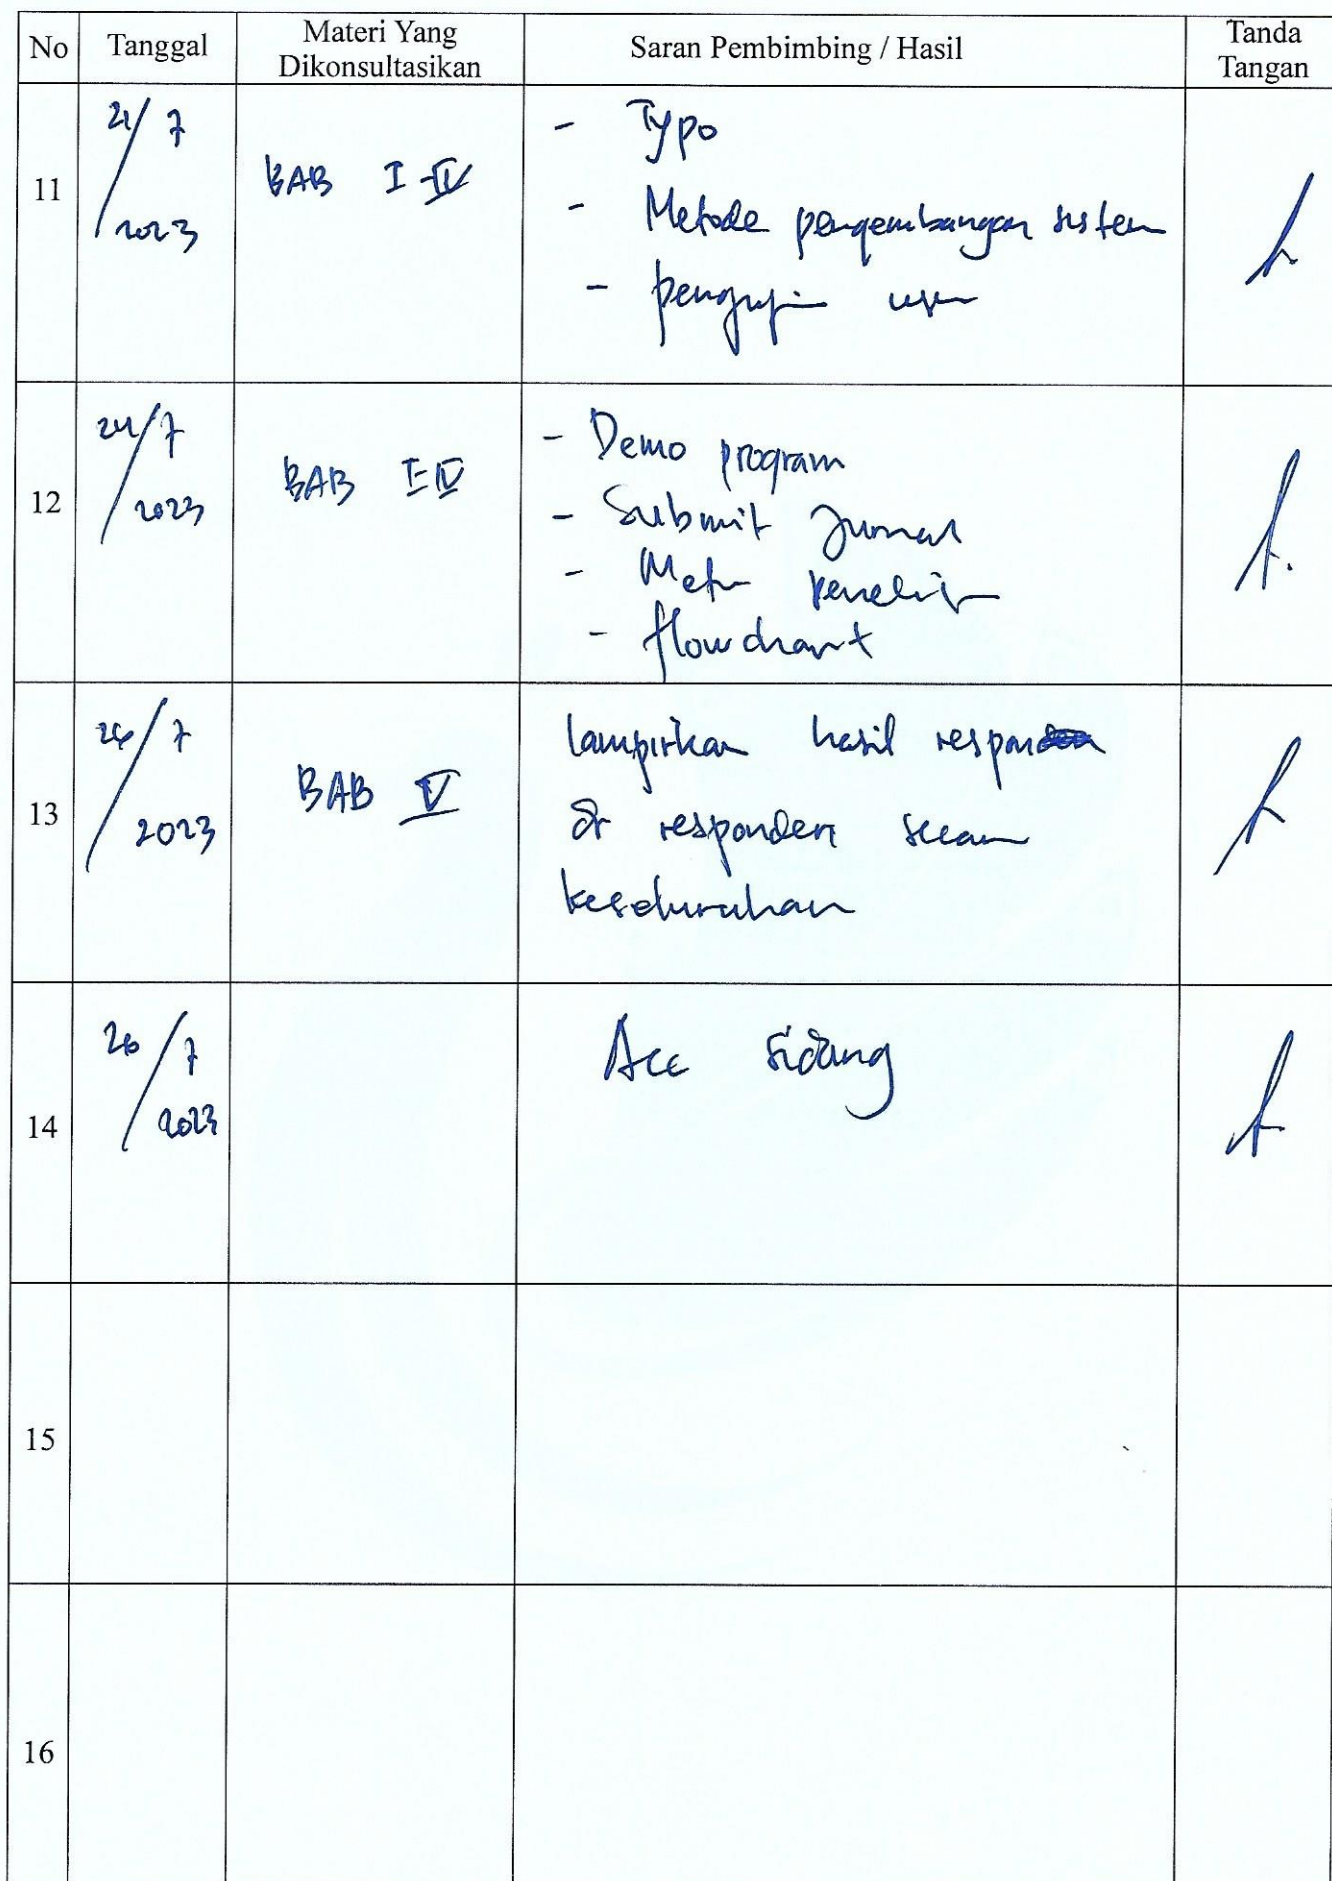 No Tanggal Materi Yang Dikonsultasikan Saran Pembimbing / Hasil Tanda Tangan
11
21/7
2023
BAB I-IV
- Typo
- Metode pengembangan sistem
- pengujin user
12
24/7
2023
BAB I-IV
- Demo program
- Submit Jurnal
- Penelitin
- flowchart
13
26/7
2023
BAB V
lampirkan hasil respon
dr responden secara
keseluruhan
14
26/7
2023
Acc Sidang
15
16